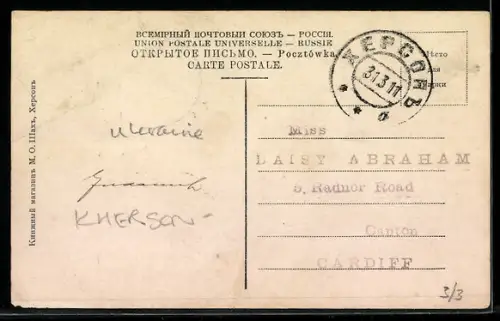 ВСЕМІРНЫЙ ПОЧТОВЫЙ СОЮЗЪ.—РОССІЯ.
UNION POSTALE UNIVERSELLE.—RUSSIE
ОТКРЫТОЕ ПИСЬМО. — Pocztówka
CARTE POSTALE.
Мѣсто
для
марки
ХЕРСОНЪ
31 3 11
а
Ukraine
KHERSON-
Книжный магазинъ М. О. Шахъ, Херсонъ
Miss
DAISY ABRAHAM
5, Radnor Road
Canton
CARDIFF
3/3